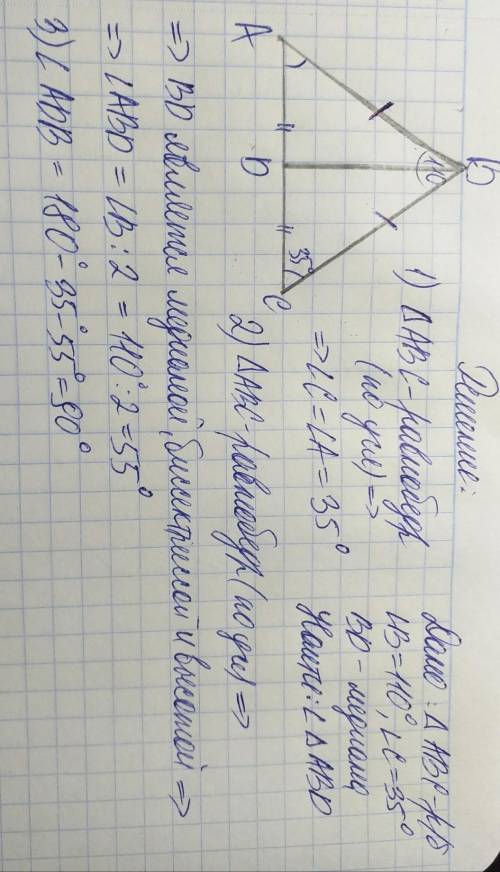 Решение:
Дано: △ABC-р/б
∠B=110°, ∠C=35°
BD-медиана
Найти: ∠△ABD
A
B
C
D
110
35°
1) △ABC-равнобедр
(по усл) =>
=> ∠C=∠A=35°
2) △ABC-равнобедр (по усл) =>
=> BD является медианой, биссектрисой и высотой =>
=> ∠ABD = ∠B:2 = 110°:2=55°
3) ∠ADB = 180°-35°-55°=90°